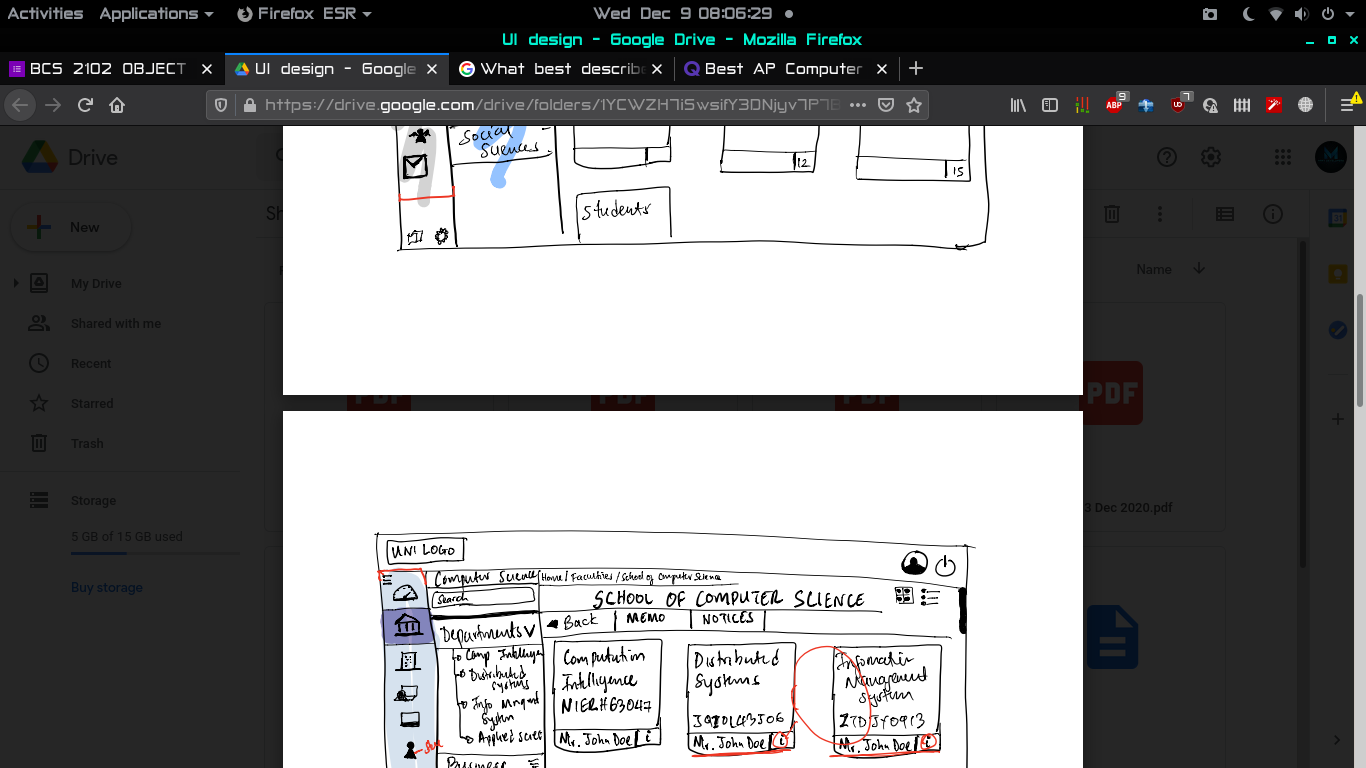 Activities Applications Firefox ESR Wed Dec 9 08:06:29
UI design - Google Drive - Mozilla Firefox
BCS 2102 OBJECT UI design - Google What best describe Best AP Computer
https://drive.google.com/drive/folders/1YCWZH7iSwsifY3DNjyv7P7B
ABP 9 7
Drive
New
My Drive
Shared with me
Recent
Starred
Trash
Storage
5 GB of 15 GB used
Buy storage
Name
PDF PDF PDF PDF
3 Dec 2020.pdf
Social
Sciences
12
15
Students
UNI LOGO
Computer Science Home / Faculties / School of Computer Science
Search
SCHOOL OF COMPUTER SCIENCE
Back MEMO NOTICES
Departments
Comp Intelligence
Distributed
Systems
Info
System
Applied
Business
Computation
Intelligence
NIERH63047
Mr. John Doe i
Distributed
Systems
Mr. John Doe i
Management
System
Mr. John Doe i